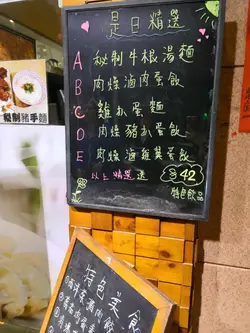 是日精選
A 秘制牛根湯麵
B 肉燥滷肉蛋飯
C 雞扒蛋麵
D 肉燥豬扒蛋飯
E 肉燥滷雞翼蛋飯
以上精選送
$42
特色飲品
秘制豬手麵
特色美食